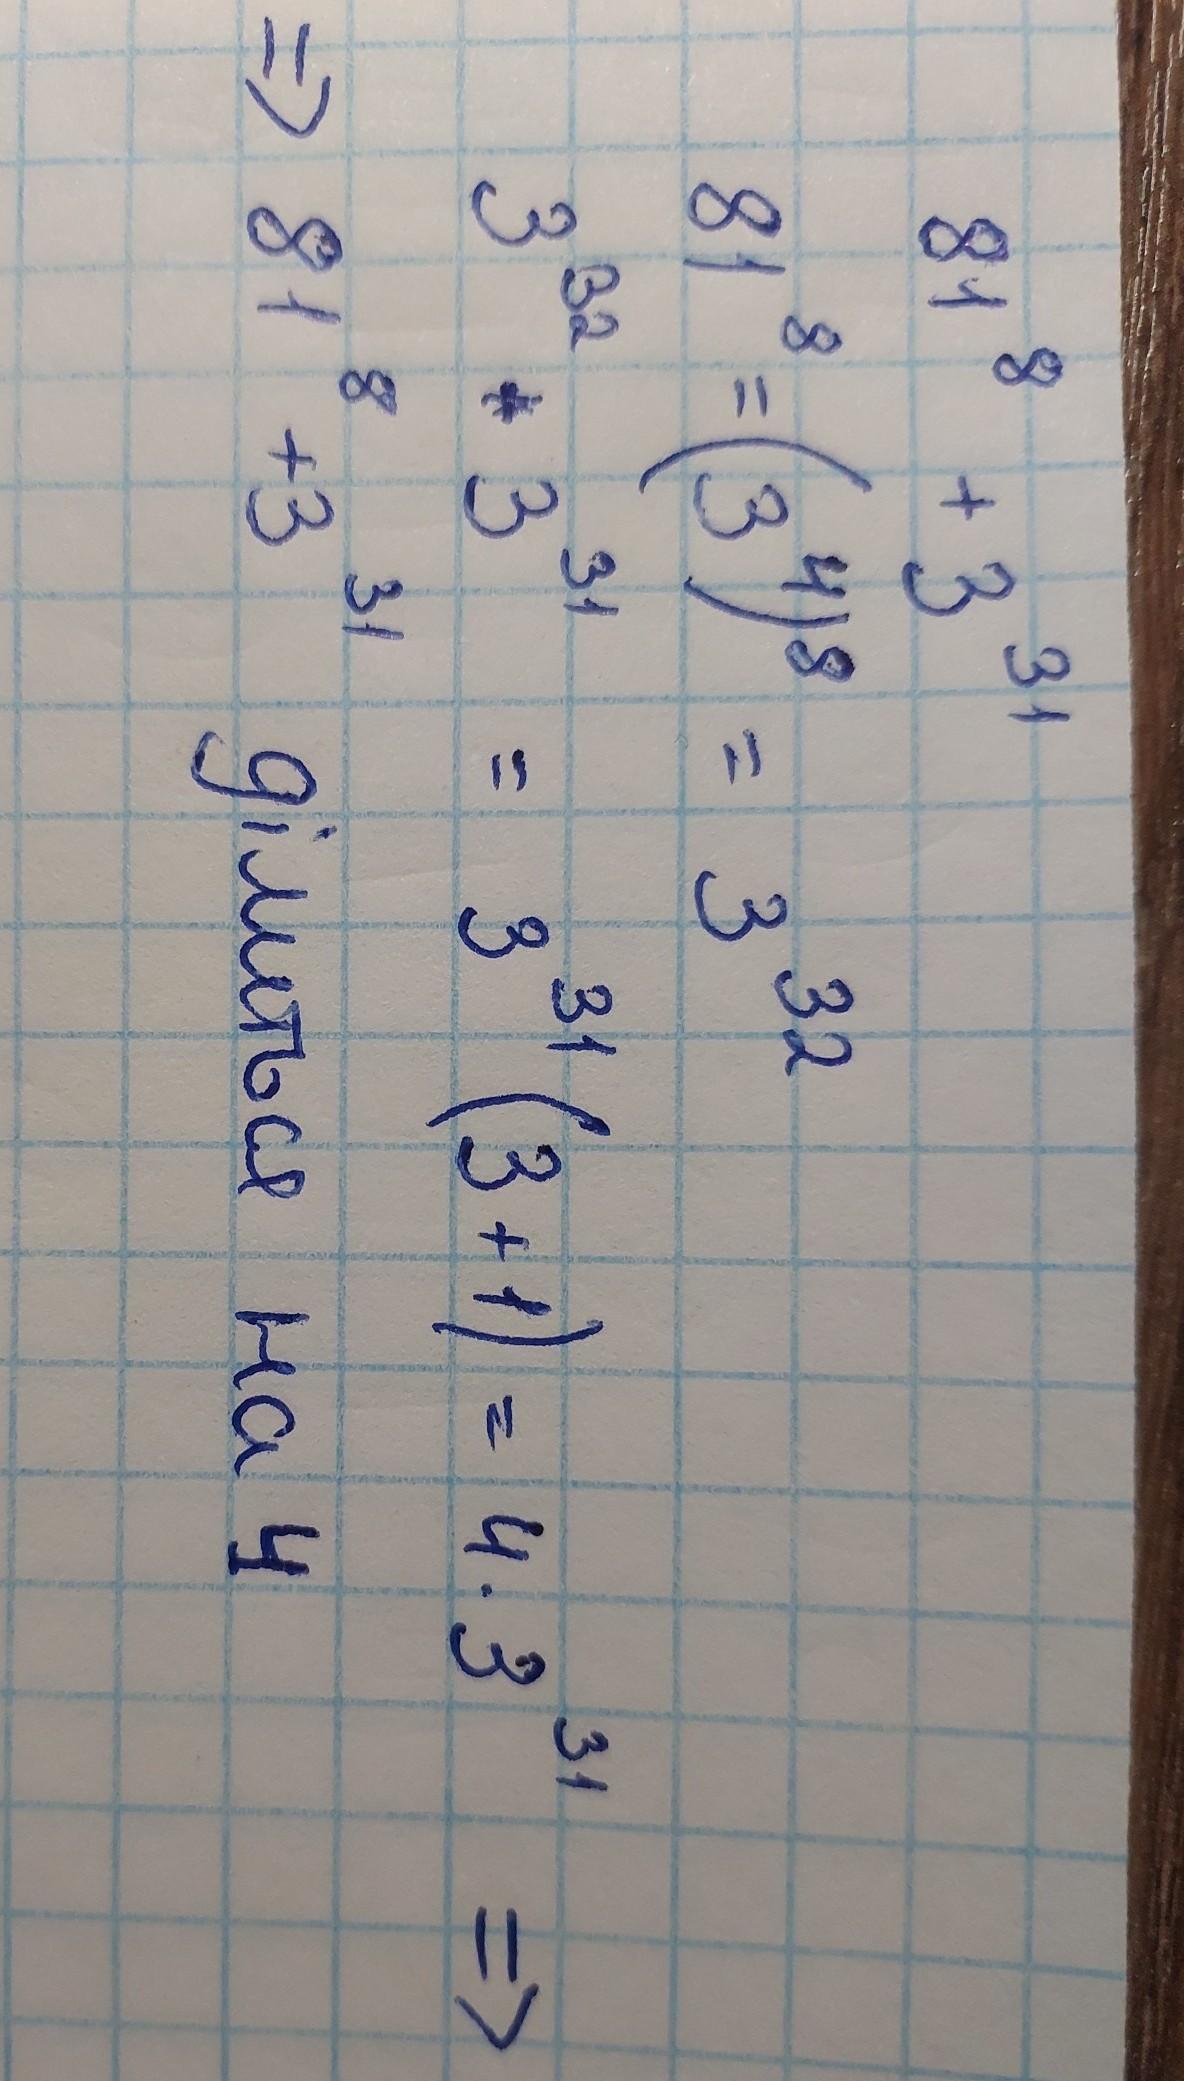 81⁸ + 3³¹
81⁸ = (3⁴)⁸ = 3³²
3³² * 3³¹ = 3³¹(3+1) = 4·3³¹ =>
=> 81⁸ + 3³¹ ділиться на 4